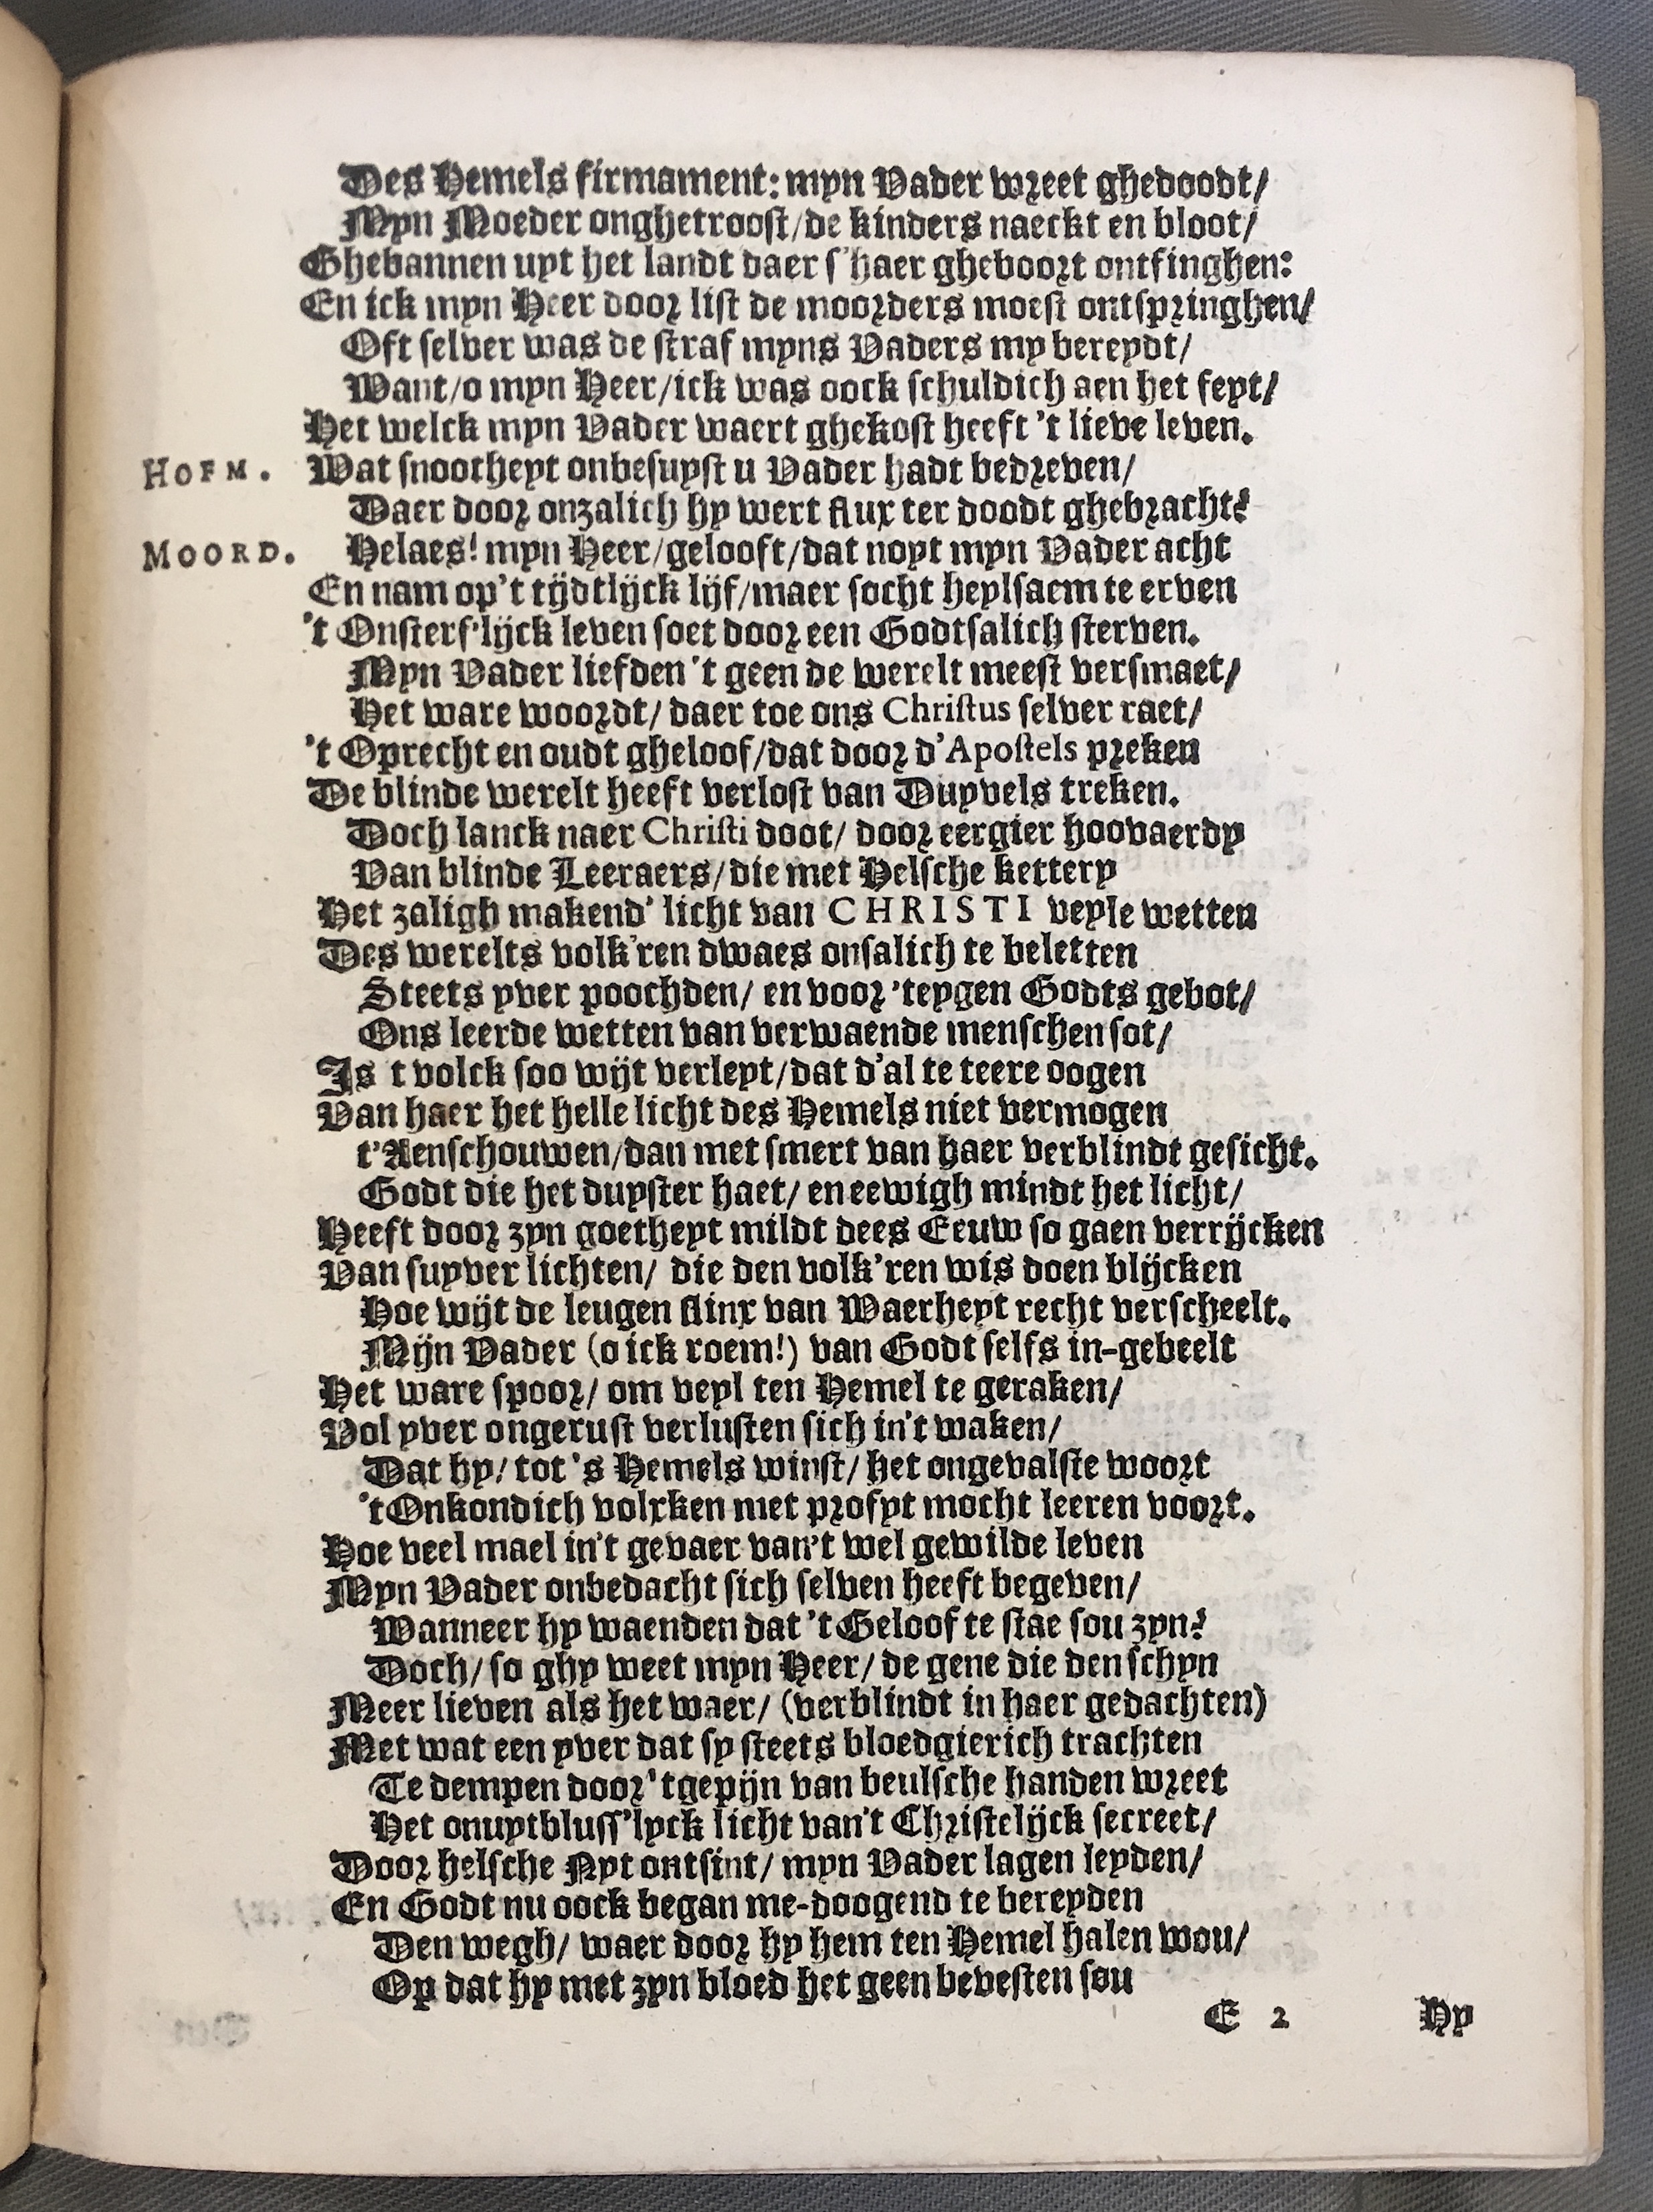 Des Hemels firmament: myn Vader wreet ghedoodt/
Myn Moeder onghetroost/de kinders naeckt en bloot/
Ghebannen uyt het landt daer s'haer gheboort ontfinghen:
En ick myn Heer door list de moorders moest ontspringhen/
Oft selver was de straf myns Vaders my bereydt/
Want/o myn Heer/ick was oock schuldich aen het feyt/
Het welck myn Vader waert ghekost heeft 't lieve leven.
HOFM. Wat snootheyt onbesuyst u Vader hadt bedreven/
Daer door onzalich hy wert flux ter doodt ghebracht?
MOORD. Helaes! myn Heer/gelooft/dat noyt myn Vader acht
En nam op't tijdtlijck lijf/maer socht heylsaem te erven
't Onsterf'lijck leven soet door een Godtsalich sterven.
Myn Vader liefden 't geen de werelt meest versmaet/
Het ware woordt/ daer toe ons Christus selver raet/
't Oprecht en oudt gheloof/dat door d'Apostels preken
De blinde werelt heeft verlost van Duyvels treken.
Doch lanck naer Christi doot/ door eergier hoovaerdy
Van blinde Leeraers/die met Helsche kettery
Het zaligh makend' licht van CHRISTI veyle wetten
Des werelts volk'ren dwaes onsalich te beletten
Steets yver poochden/ en voor 'teygen Godts gebot/
Ons leerde wetten van verwaende menschen sot/
Is t volck soo wijt verleyt/dat d'al te teere oogen
Van haer het helle licht des Hemels niet vermogen
t'Aenschouwen/dan met smert van haer verblindt gesicht.
Godt die het duyster haet/ en eewigh mindt het licht/
Heeft door zyn goetheyt mildt dees Eeuw so gaen verrijcken
Van suyver lichten/ die den volk'ren wis doen blijcken
Hoe wijt de leugen flinx van Waerheyt recht verscheelt.
Mijn Vader (o ick roem!) van Godt selfs in-gebeelt
Het ware spoor/ om veyl ten Hemel te geraken/
Vol yver ongerust verlusten sich in't waken/
Dat hy/ tot 's Hemels winst/ het ongevalste woort
't Onkondich volxken met profyt mocht leeren voort.
Hoe veel mael in't gevaer van't wel gewilde leven
Myn Vader onbedacht sich selven heeft begeven/
Wanneer hy waenden dat 't Geloof te stae sou zyn?
Doch/ so ghy weet myn Heer/ de gene die den schyn
Meer lieven als het waer/ (verblindt in haer gedachten)
Met wat een yver dat sy steets bloedgierich trachten
Te dempen door 'tgepijn van beulsche handen wreet
Het onuytbluss'lyck licht van't Christelijck secreet/
Door helsche Nyt ontsint/ myn Vader lagen leyden/
En Godt nu oock began me-doogend te bereyden
Den wegh/ waer door hy hem ten Hemel halen wou/
Op dat hy met zyn bloed het geen bevesten sou
E 2 Hy